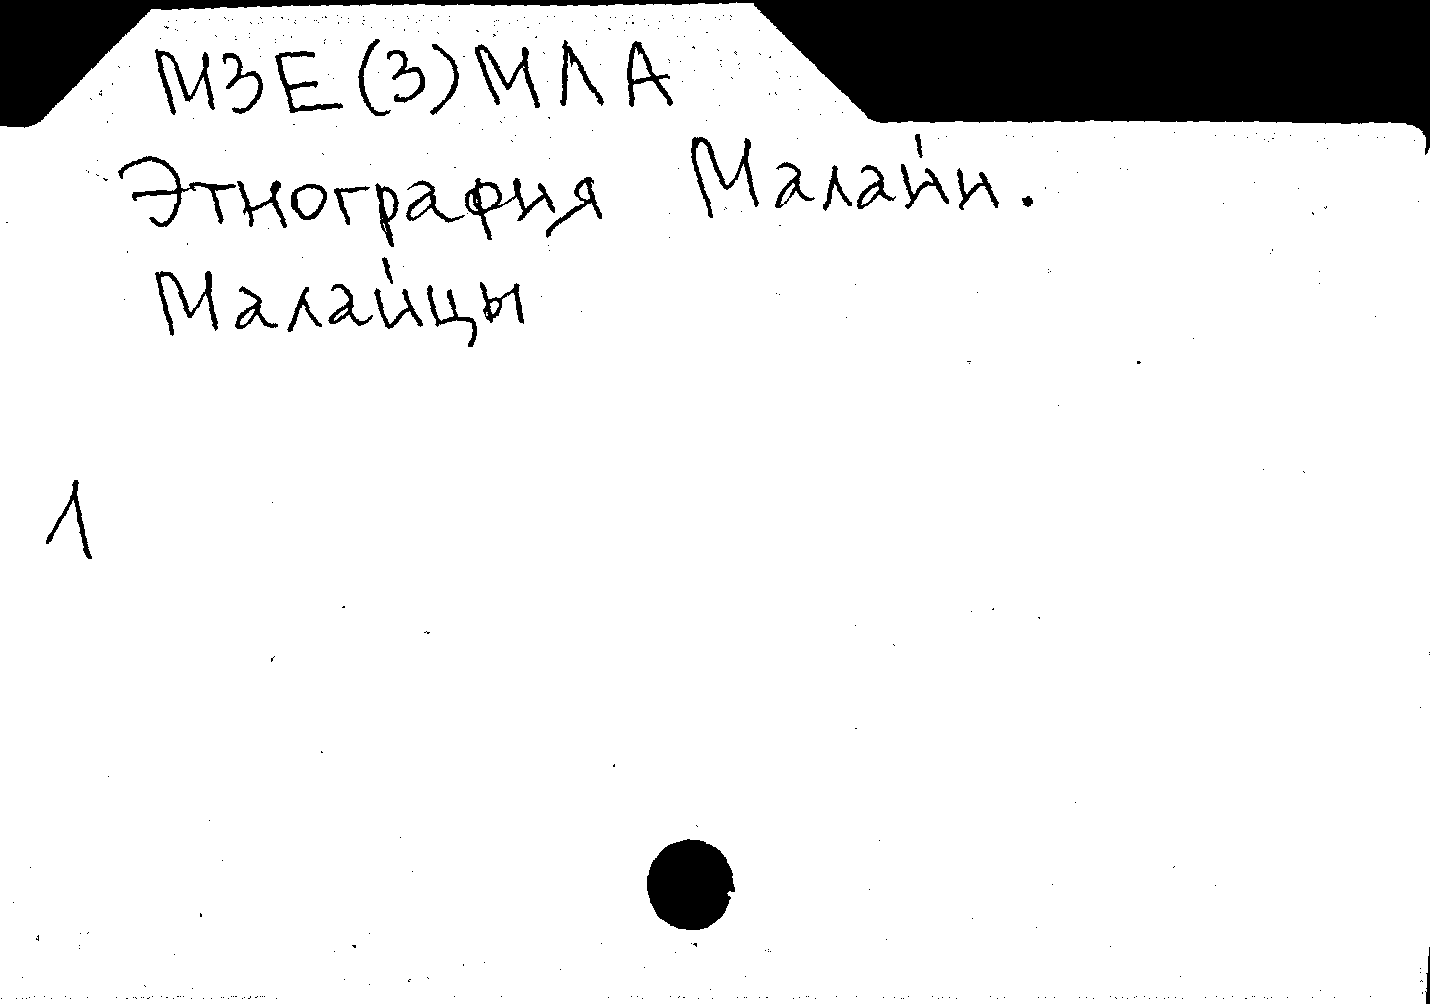 МЗЕ(3)МЛА
Этнография Малайи.
Малайцы
1